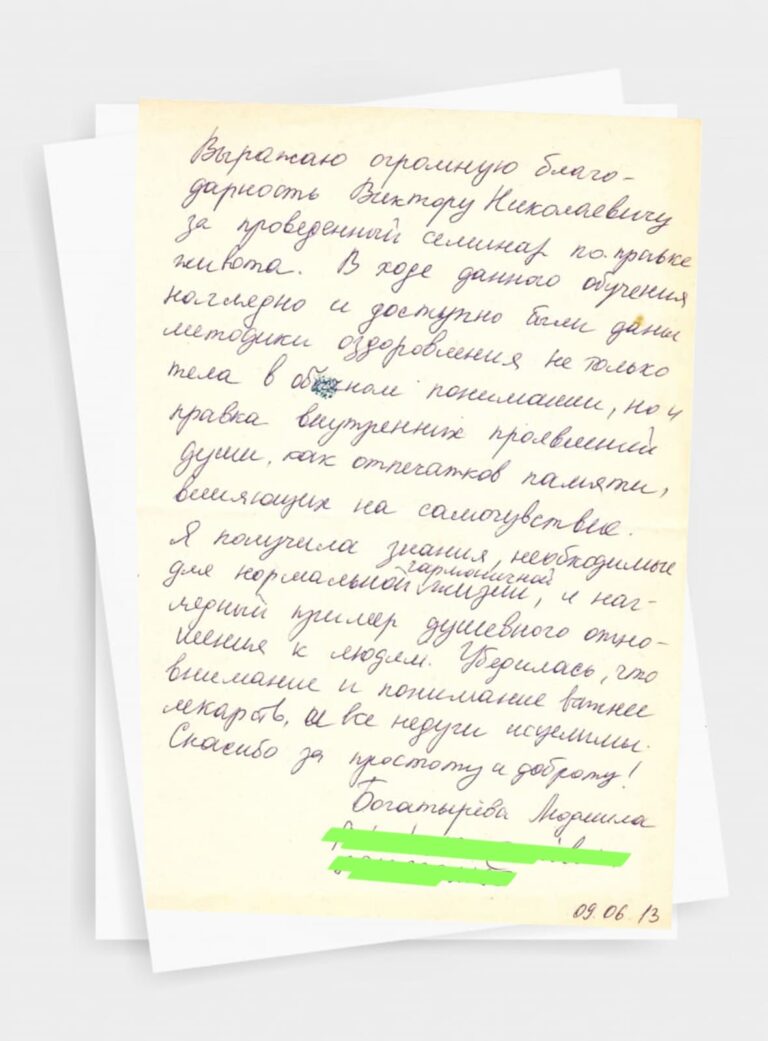 Выражаю огромную благо-
дарность Виктору Николаевичу
за проведенный семинар по правке
живота. В ходе данного обучения
наглядно и доступно были даны
методики оздоровления не только
тела в обычном понимании, но и
правка внутренних проявлений
души, как отпечатков памяти,
влияющих на самочувствие.
Я получила знания, необходимые
для нормальной гармоничной жизни, и наг-
лядный пример душевного отно-
шения к людям. Убедилась, что
внимание и понимание важнее
лекарств, и все недуги исцелимы.
Спасибо за простоту и доброту!
Богатырёва Людмила
09.06.13